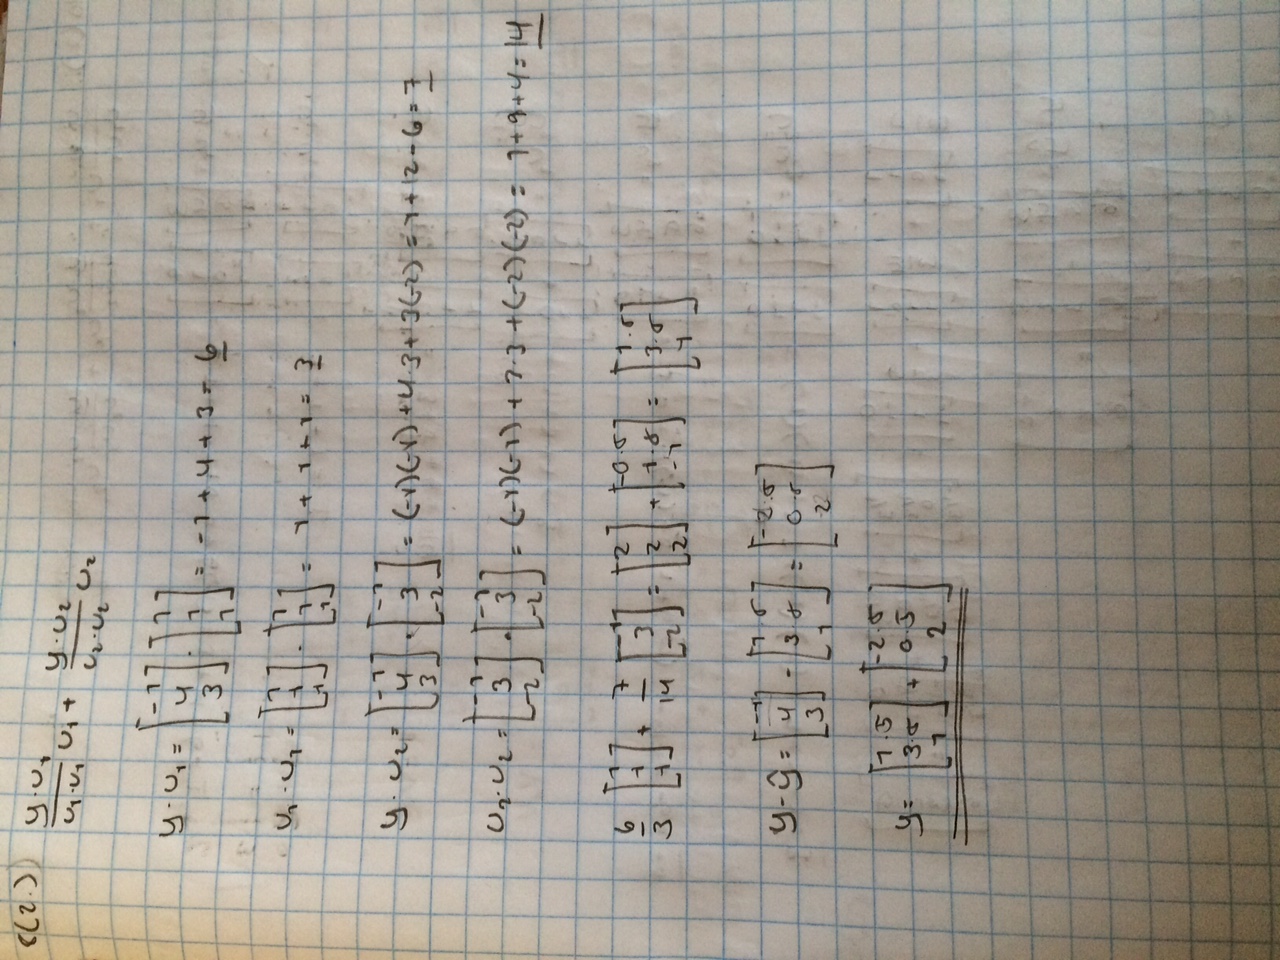 8(2.)
y·u₁/u₁·u₁ u₁ + y·u₂/u₂·u₂ u₂
y·u₁ = [-1 4 3] · [1 1 1] = -1 + 4 + 3 = 6
u₁·u₁ = [1 1 1] · [1 1 1] = 1 + 1 + 1 = 3
y·u₂ = [-1 4 3] · [-1 3 -2] = (-1)(-1) + 4·3 + 3(-2) = 1 + 12 - 6 = 7
u₂·u₂ = [-1 3 -2] · [-1 3 -2] = (-1)(-1) + 3·3 + (-2)(-2) = 1 + 9 + 4 = 14
6/3 [1 1 1] + 7/14 [-1 3 -2] = [2 2 2] + [-0.5 1.5 -1] = [1.5 3.5 1]
y - ŷ = [-1 4 3] - [1.5 3.5 1] = [-2.5 0.5 2]
y = [1.5 3.5 1] + [-2.5 0.5 2]